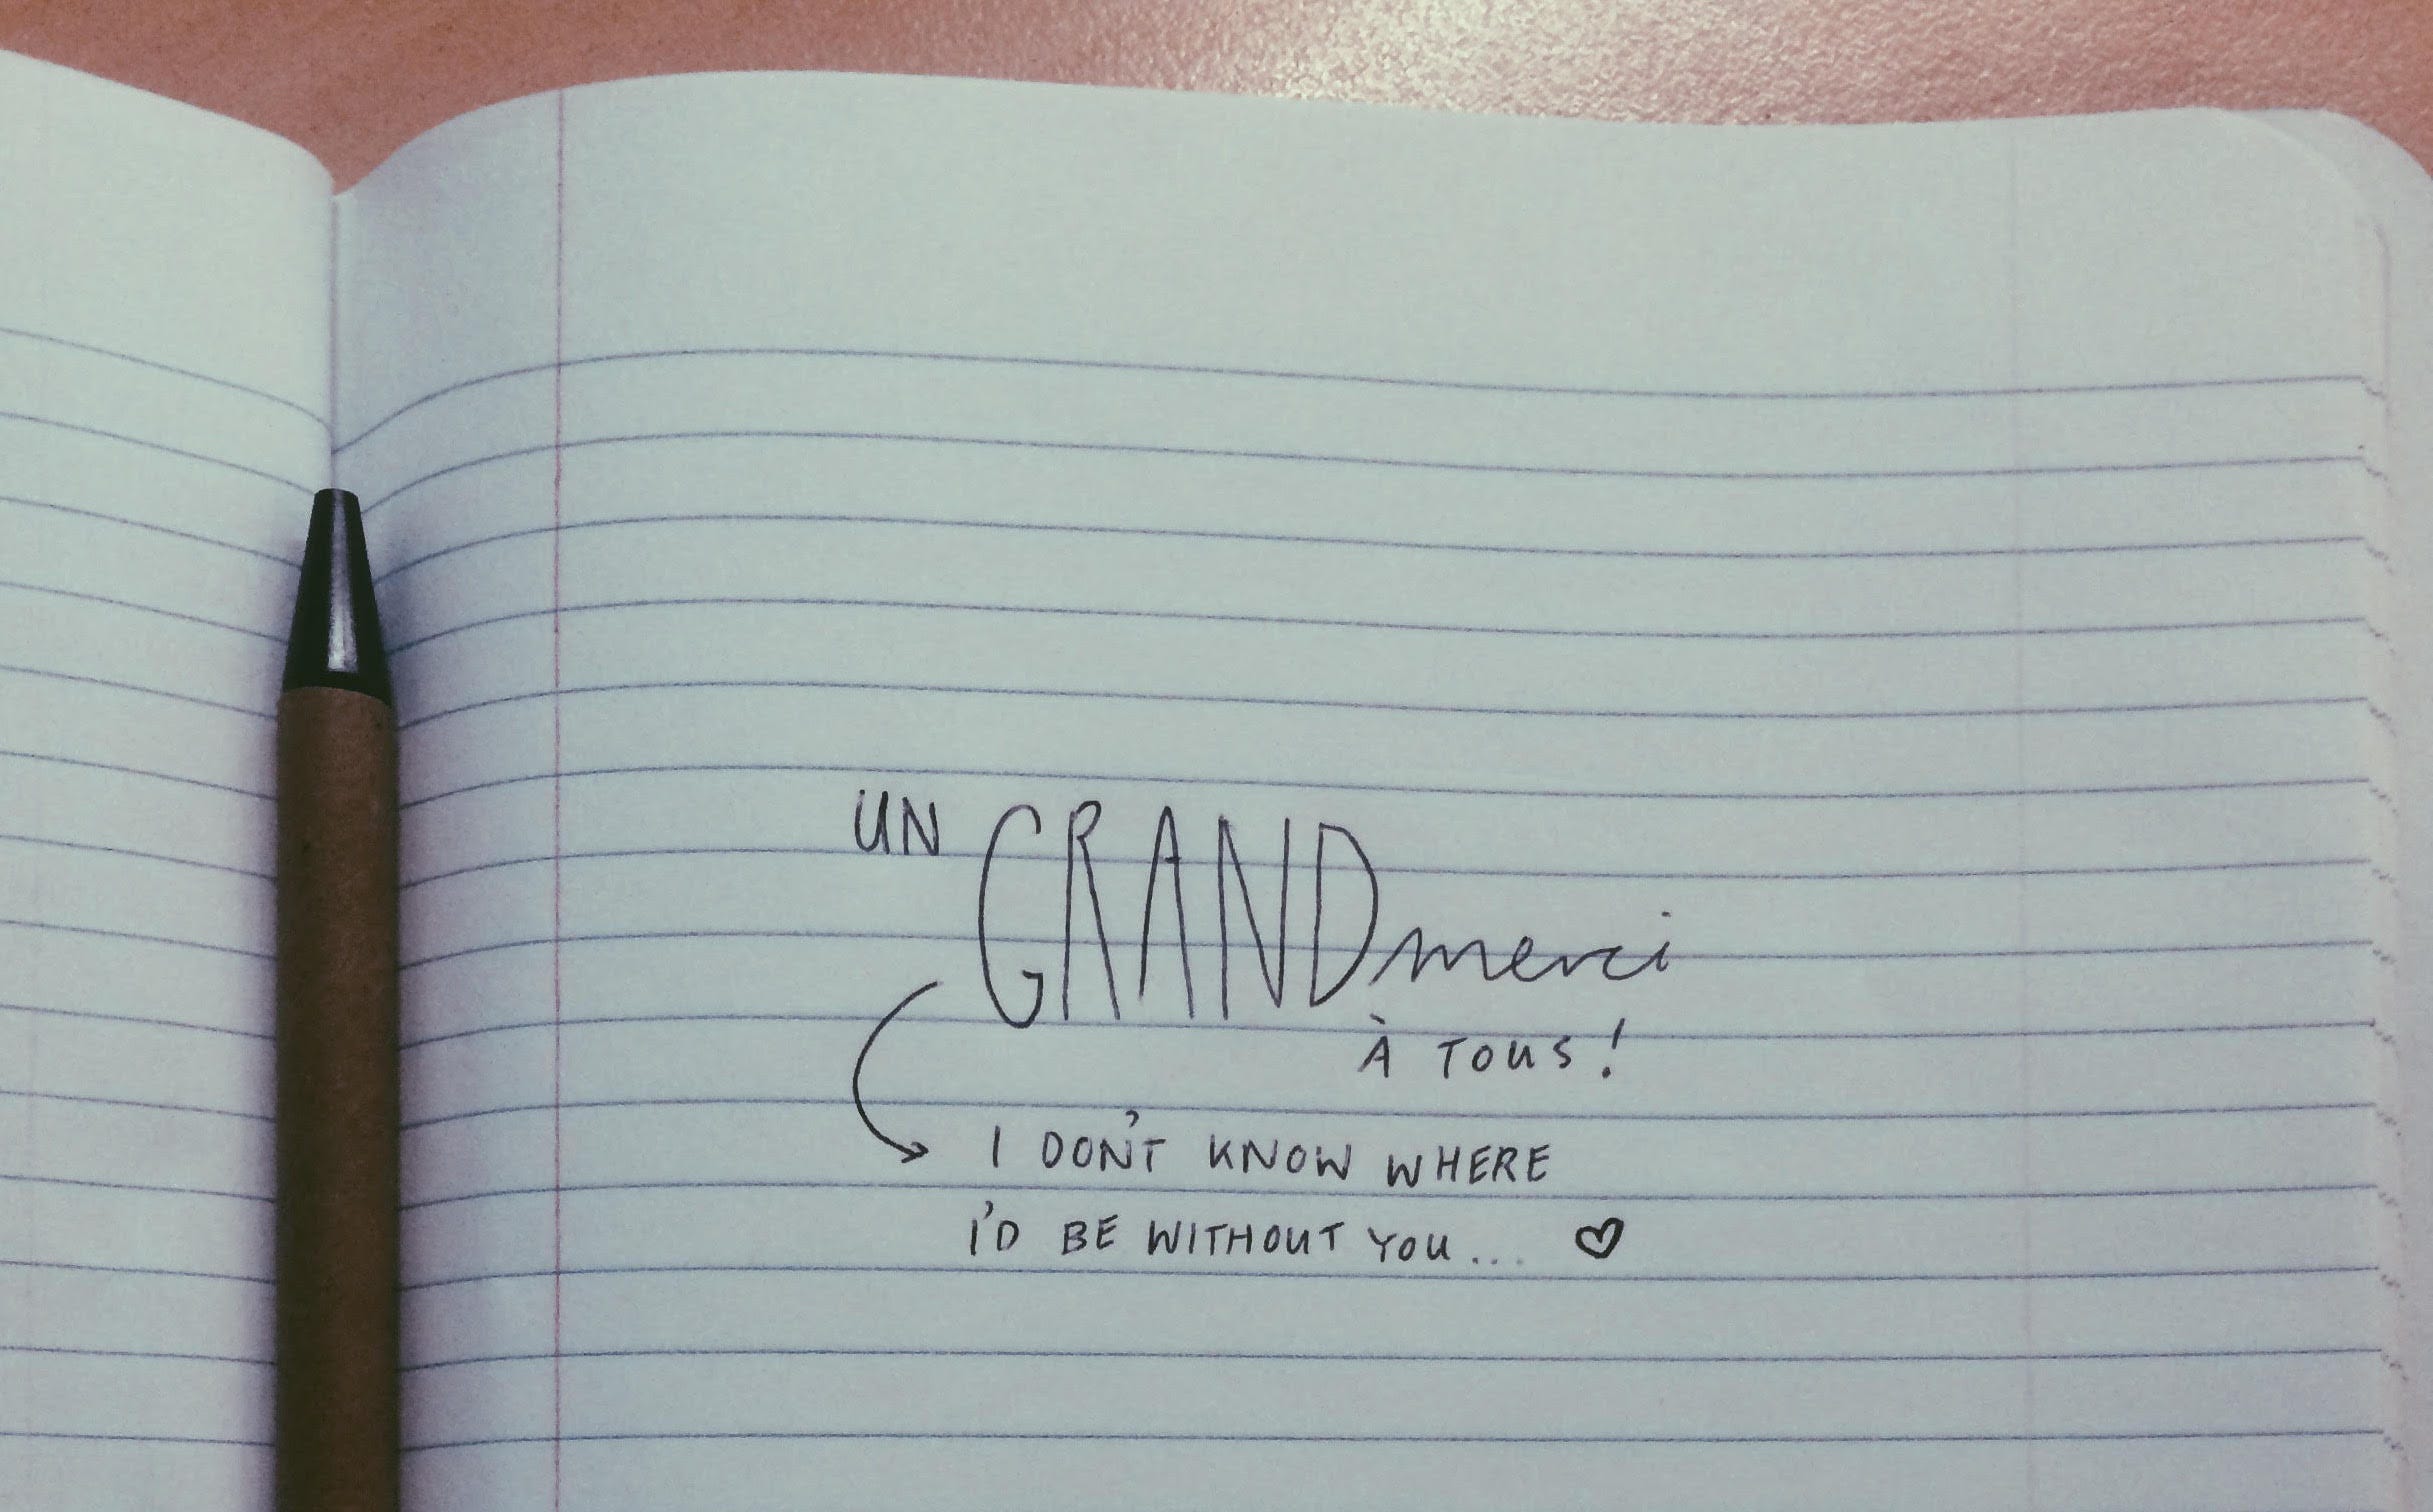 UN GRAND merci
À TOUS!
I DON'T KNOW WHERE
I'D BE WITHOUT YOU... ♡